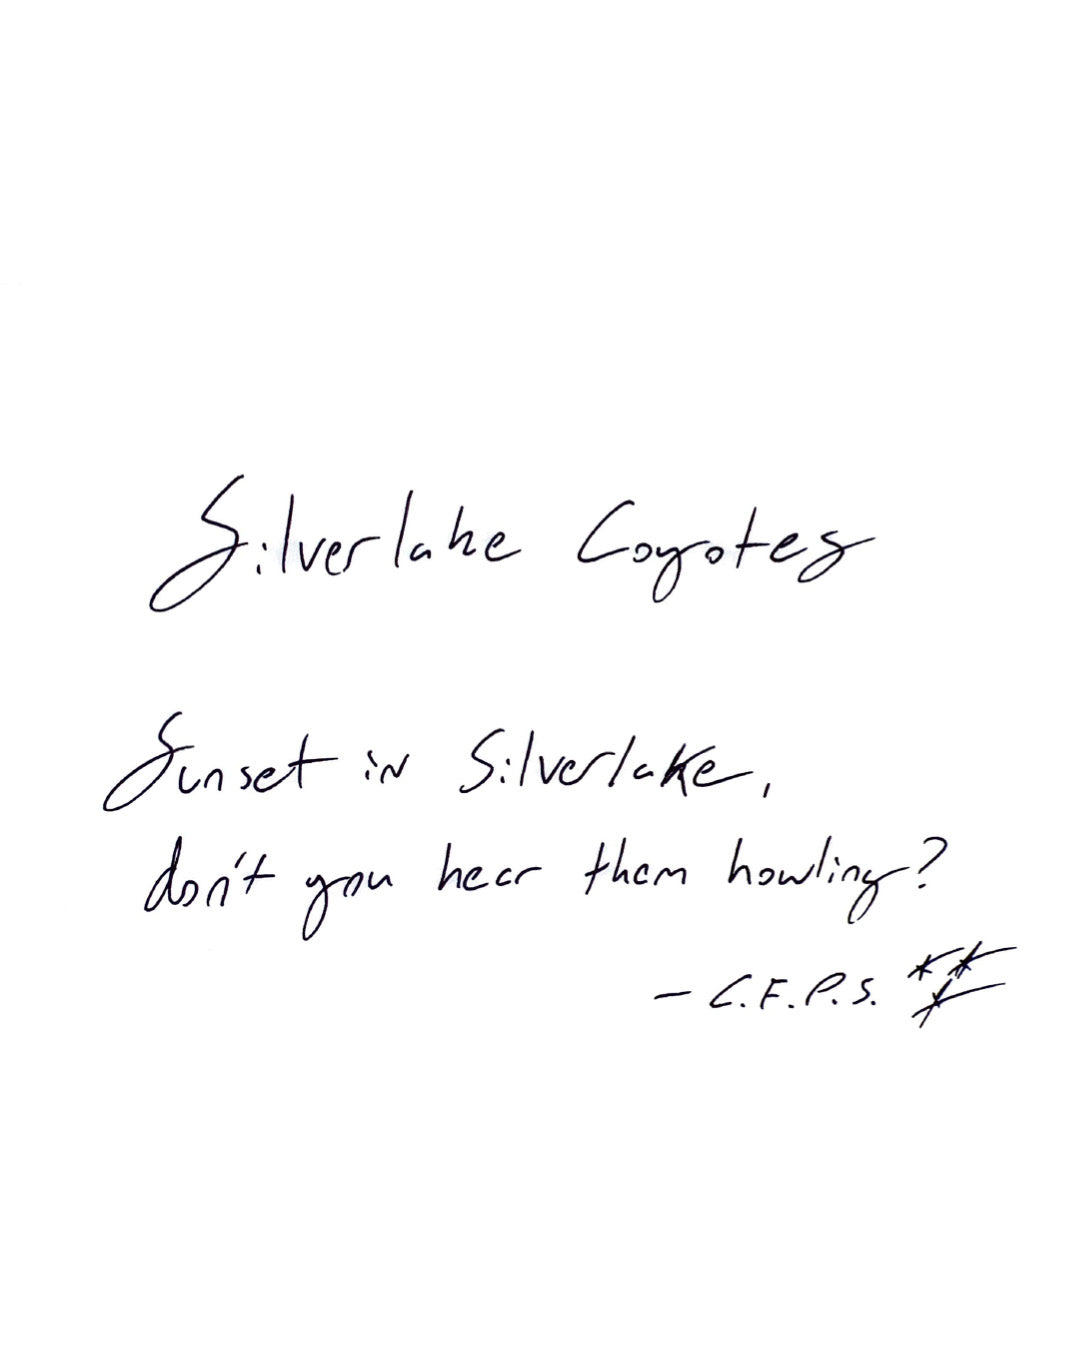 Silverlake Coyotes
Sunset in Silverlake,
don't you hear them howling?
- C.F.P.S.